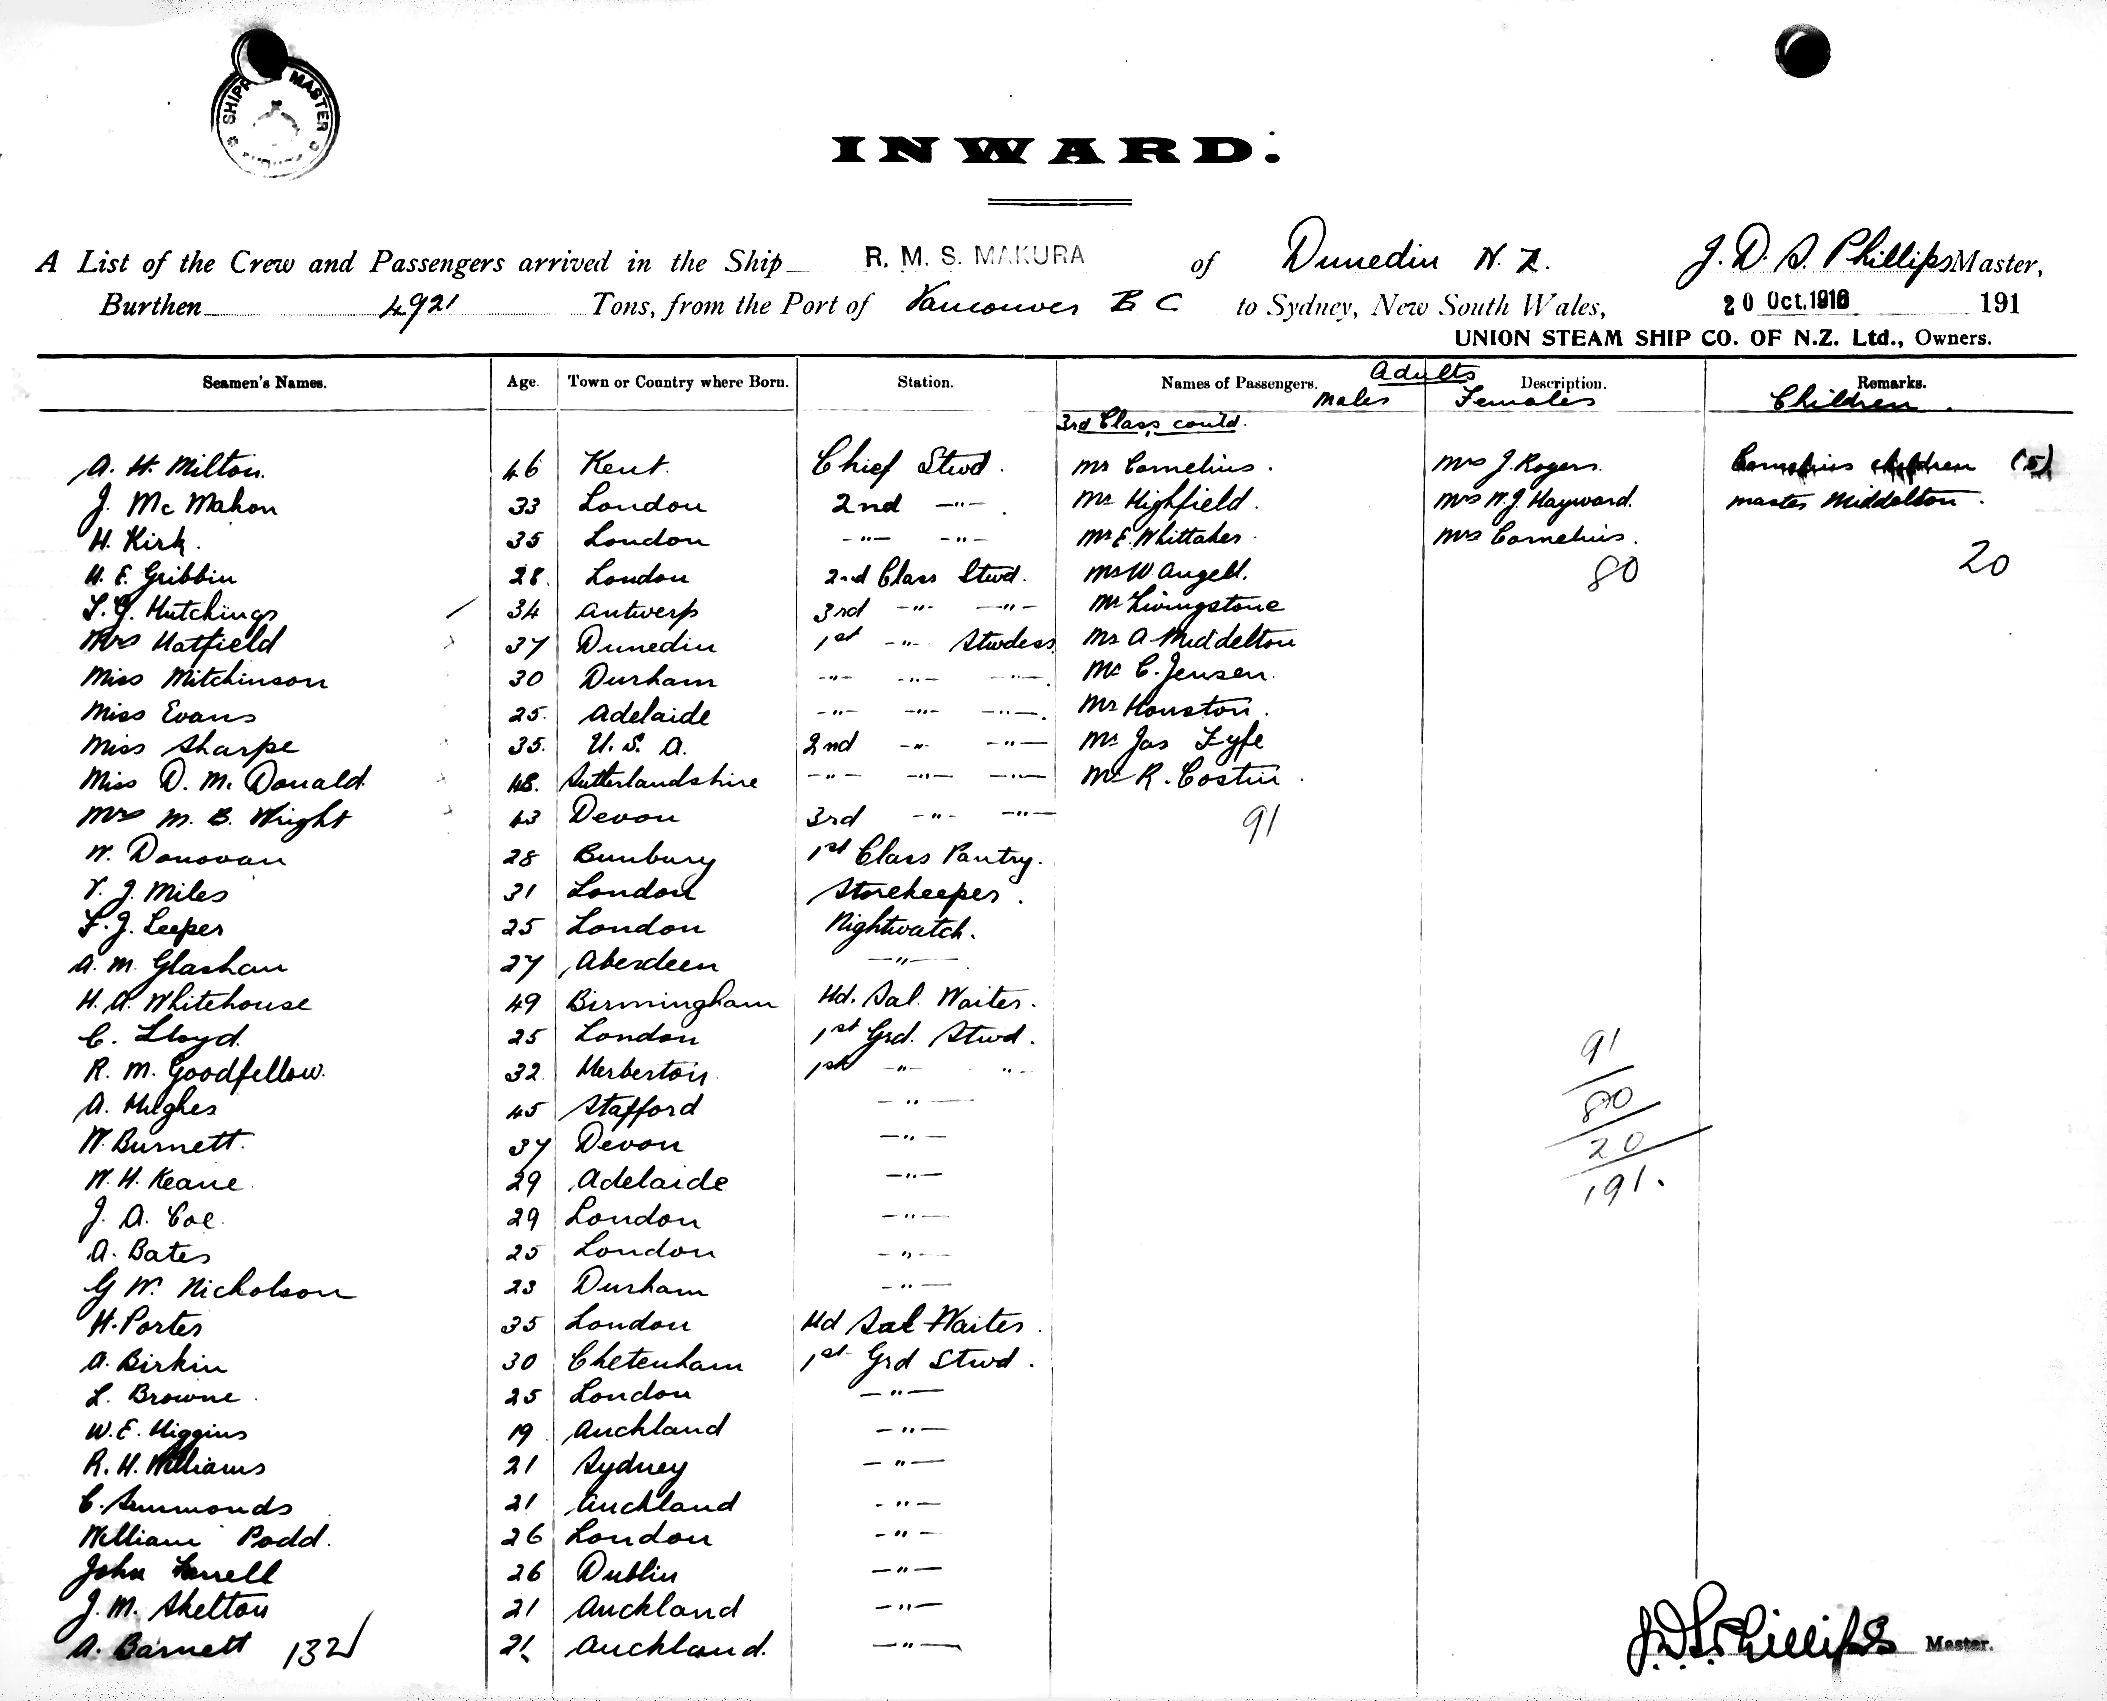 SHIPP MASTER
INWARD.
A List of the Crew and Passengers arrived in the Ship R. M. S. MAKURA of Dunedin N. Z. J. D. S. Phillips Master,
Burthen 4921 Tons, from the Port of Vancouver B C to Sydney, New South Wales, 20 Oct. 1916 191
UNION STEAM SHIP CO. OF N.Z. Ltd., Owners.
Seamen's Names. Age. Town or Country where Born. Station. Names of Passengers. Adults Description. Remarks.
Males Females Children.
3rd Class contd.
A. H. Milton. 46 Kent. Chief Stwd. Mr Cornelius. Mrs J. Rogers. Cornelius children (5)
J. McMahon 33 London 2nd -"-. Mr Highfield. Mrs W. J. Hayward. Master Middelton.
H. Kirk. 35 London -"- -"- Mr E. Whittaker. Mrs Cornelius.
H. E. Gribbin 28. London 2nd Class Stwd. Mr W Angell. 80 20
T. G. Hutchings 34 Antwerp 3rd -"- -"- Mr Livingstone
Mrs Hatfield 37 Dunedin 1st -"- Stwdess Mr A Middelton
Miss Mitchinson 30 Durham -"- -"- -"-. Mr C. Jensen.
Miss Evans 25. Adelaide -"- -"- -"-. Mr Houston.
Miss Sharpe 35. U. S. A. 2nd -"- -"- Mr Jas Fyfe
Miss D. M. Donald. 48. Sutterlandshire -"- -"- -"- Mr R. Costin.
Mrs M. B. Wright 43 Devon 3rd -"- -"- 91
W. Donovan 28 Bunbury 1st Class Pantry.
V. J. Miles 31 London Storekeeper.
F. J. Leeper 25 London Nightwatch.
A. M. Glashan 27 Aberdeen -"-
H. A. Whitehouse 49 Birmingham Hd. Sal. Waiter.
C. Lloyd. 25 London 1st Grd. Stwd. 91
R. M. Goodfellow. 32 Herberton 1st -"- " 80
A. Hughes 45 Stafford -"-
W. Burnett. 37 Devon -"- 20
W. H. Keane. 29 Adelaide -"- 191.
J. A. Coe. 29 London -"-
A. Bates 25 London -"-
G W. Nicholson 23 Durham -"-
H. Porter 35 London Hd Sal Waiter.
A. Birkin 30 Chetenham 1st Grd Stwd.
L. Browne. 25 London -"-
W. E. Higgins 19 Auckland -"-
R. H. Williams 21 Sydney -"-
C. Summonds 21 Auckland -"-
William Podd. 26 London -"-
John Farrell 26 Dublin -"-
J. M. Skelton 21 Auckland -"-
A. Barnett 132 21 Auckland. -"- J. D. S. Phillips Master.